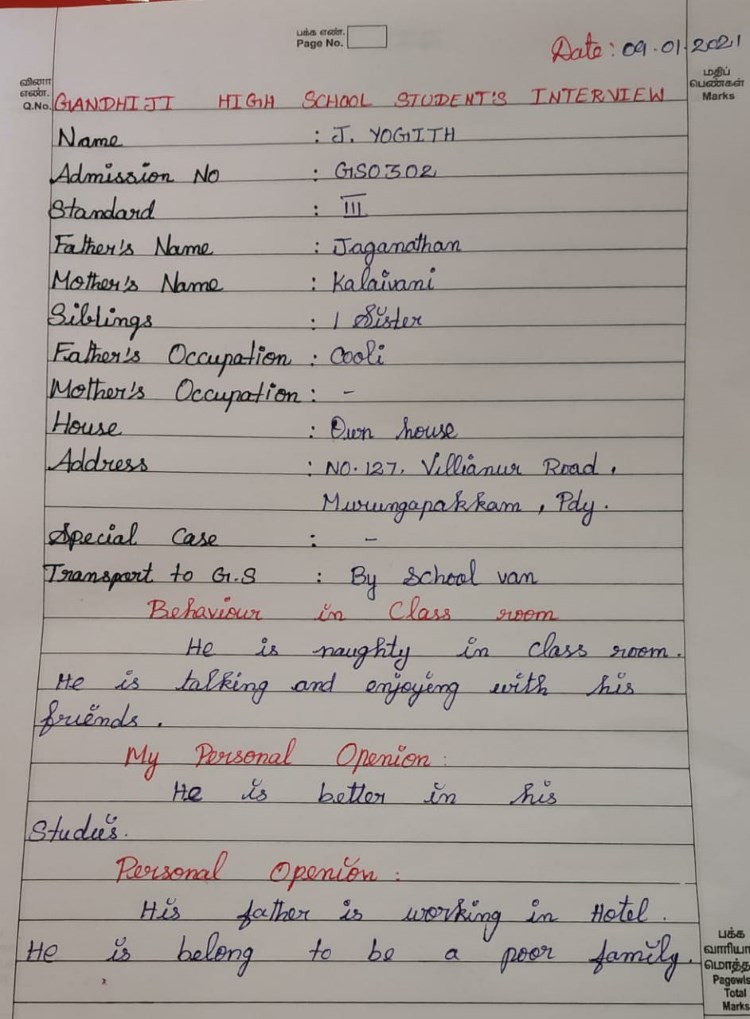 பக்க எண்.
Page No.
Date: 09.01.2021
வினா
எண்.
Q.No.
மதிப்
பெண்கள்
Marks
GANDHIJI HIGH SCHOOL STUDENT'S INTERVIEW
Name : J. YOGITH
Admission No : GS0302
Standard : III
Father's Name : Jaganathan
Mother's Name : Kalaivani
Siblings : 1 Sister
Father's Occupation : Cooli
Mother's Occupation : -
House : Own house
Address : NO.127, Villianur Road,
Murungapakkam, Pdy.
Special Case : -
Transport to G.S : By School van
Behaviour in Class room
He is naughty in class room.
He is talking and enjoyeng with his
friends.
My Personal Openion:
He is better in his
Studies.
Personal Openion:
His father is working in Hotel.
He is belong to be a poor family.
பக்க
வாரியா
மொத்த
Pagewis
Total
Marks